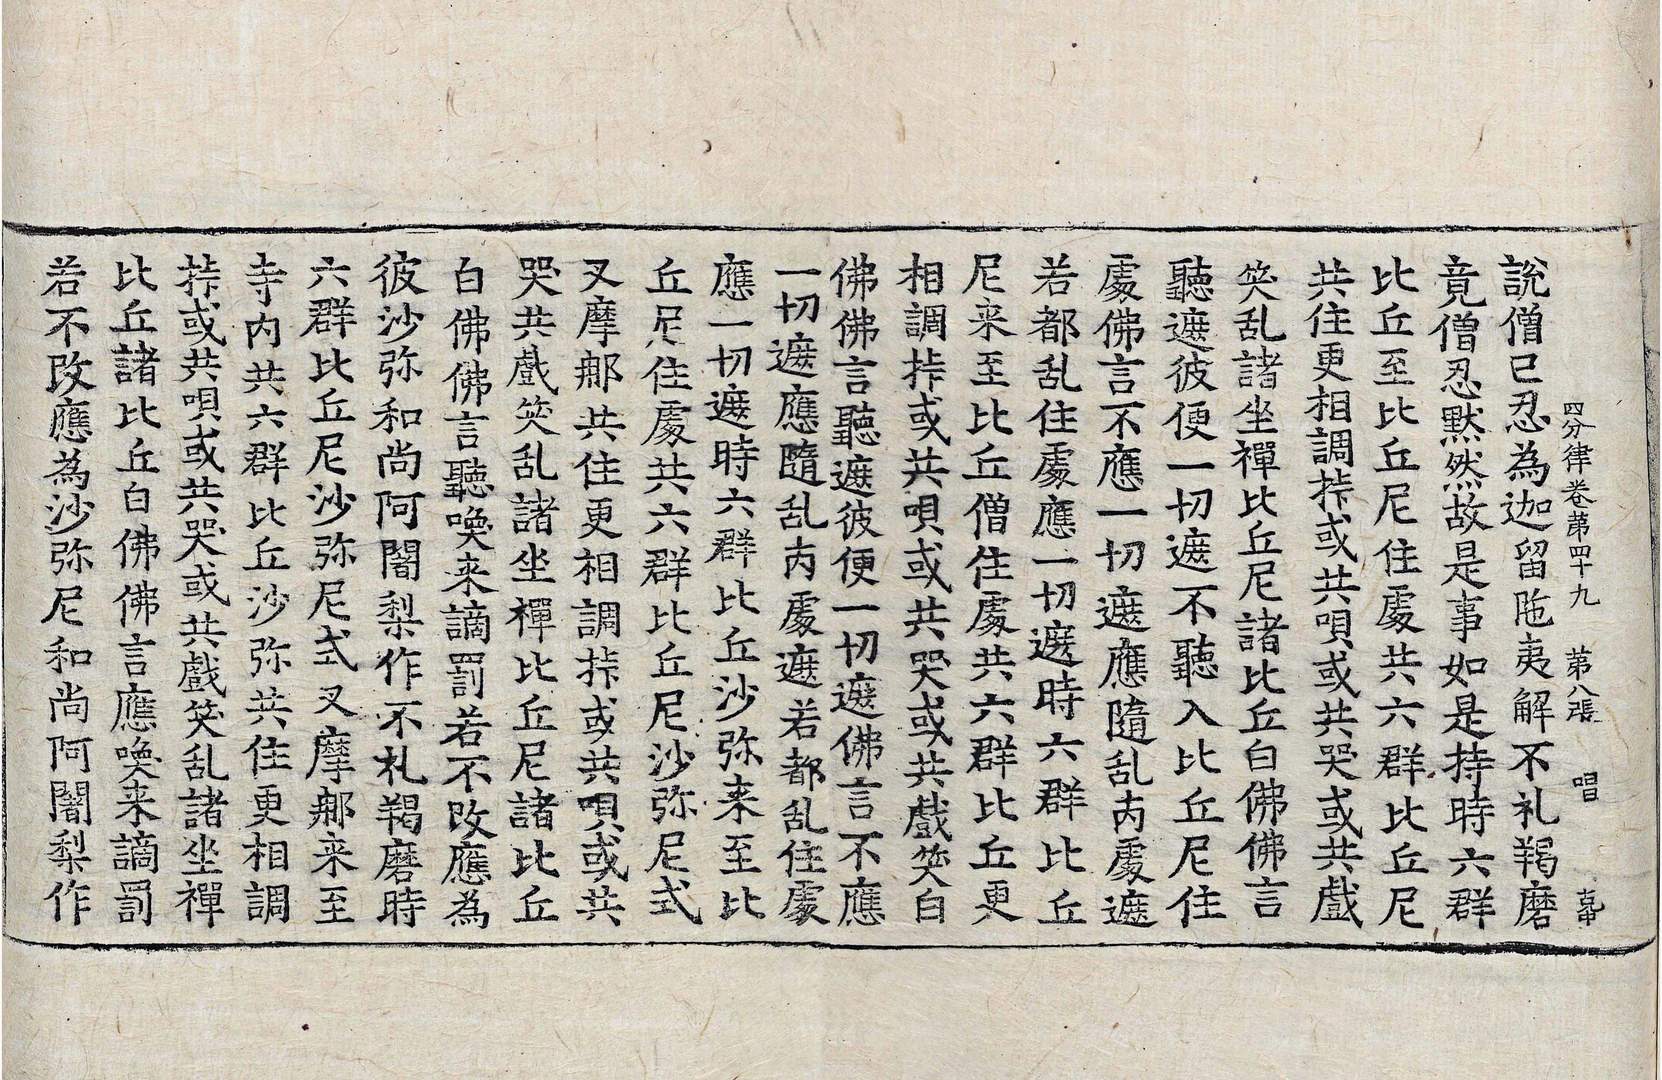 四分律卷第四十九 第八張 唱
說僧已忍為迦留陁夷解不礼羯磨
竟僧忍默然故是事如是持時六群
比丘至比丘尼住處共六群比丘尼
共住更相調㧗或共唄或共哭或共戲
笑乱諸坐禪比丘尼諸比丘白佛佛言
聽遮彼便一切遮不聽入比丘尼住
處佛言不應一切遮應隨乱內處遮
若都乱住處應一切遮時六群比丘
尼来至比丘僧住處共六群比丘更
相調㧗或共唄或共哭或共戲笑白
佛佛言聽遮彼便一切遮佛言不應
一切遮應隨乱內處遮若都乱住處
應一切遮時六群比丘沙弥来至比
丘尼住處共六群比丘尼沙弥尼式
叉摩那共住更相調㧗或共唄或共
哭共戲笑乱諸坐禪比丘尼諸比丘
白佛佛言聽喚来謫罰若不改應為
彼沙弥和尚阿闍梨作不礼羯磨時
六群比丘尼沙弥尼式叉摩那来至
寺內共六群比丘沙弥共住更相調
㧗或共唄或共哭或共戲笑乱諸坐禪
比丘諸比丘白佛佛言應喚来謫罰
若不改應為沙弥尼和尚阿闍梨作